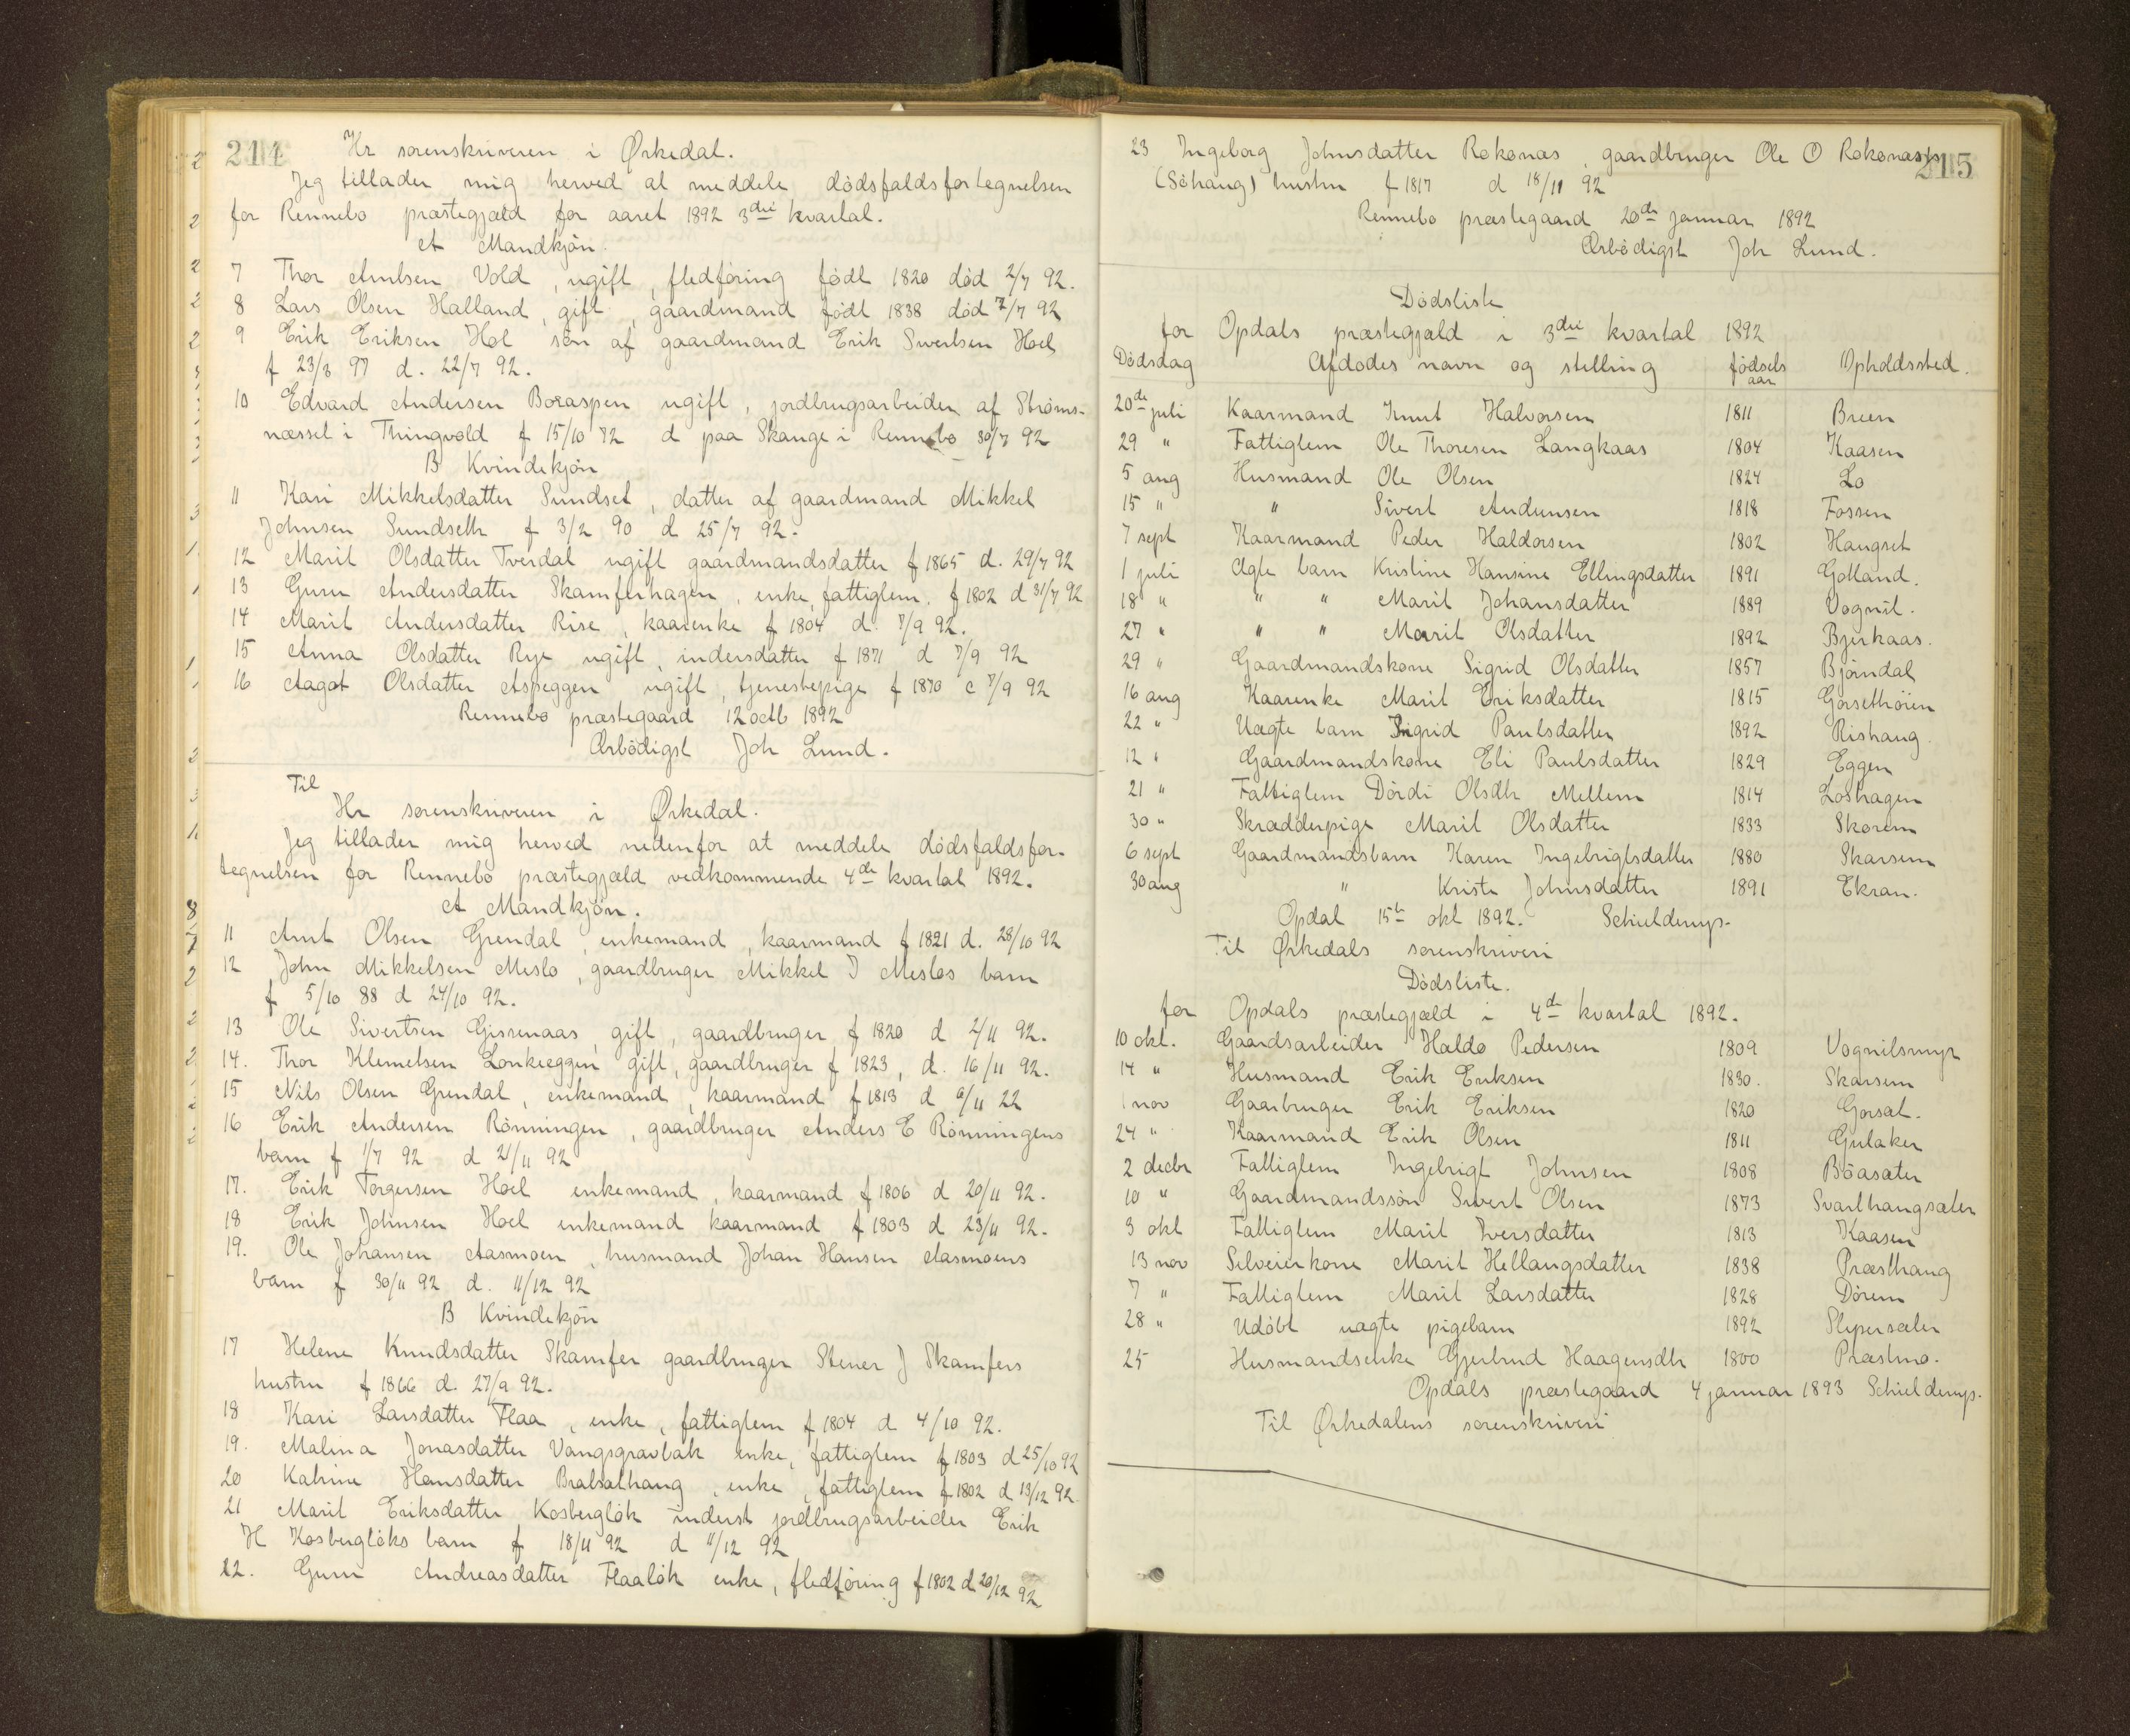 214
Hr sorenskriveren i Ørkedal.
Jeg tillader mig herved at meddele dödsfaldsfortegnelsen
for Rennebo præstegjæld for aaret 1892 3die kvartal.
A Mandkjön.
7 Thor Arntsen Vold, ugift, fledföring födt 1820 död 2/7 92.
8 Lars Olsen Halland, gift, gaardmand födt 1838 död 7/7 92
9 Erik Eriksen Hol sön af gaardmand Erik Sivertsen Hoel
f 23/3 97 d. 22/7 92.
10 Edvard Andersen Boraspen ugift, jordbrugsarbeider af Ströms-
næsset i Thingvold f 15/10 72 d paa Skauge i Rennebo 30/7 92
B Kvindekjön
11 Kari Mikkelsdatter Sundset, datter af gaardmand Mikkel
Johnsen Sundseth f 3/2 90 d 25/7 92.
12 Marit Olsdatter Tverdal ugift gaardmandsdatter f 1865 d. 29/7 92
13 Guru Andersdatter Skamferhagen, enke, fattiglem. f 1802 d 31/7 92
14 Marit Andersdatter Rise, kaarenke f 1804 d. 7/9 92.
15 Anna Olsdatter Rye ugift, indersdatter f 1871 d 7/9 92
16 Aagot Olsdatter Aspeggen ugift, tjenestepige f 1870 c 7/9 92
Rennebo præstegaard 12 octb 1892
Ærbödigst Joh Lund.
Til
Hr sorenskriveren i Ørkedal.
Jeg tillader mig herved nedenfor at meddele dödsfaldsfor-
tegnelsen for Rennebo præstegjæld vedkommende 4de kvartal 1892.
A Mandkjön.
11 Arnt Olsen Grendal, enkemand, kaarmand f 1821 d. 28/10 92
12 John Mikkelsen Meslo, gaardbruger Mikkel J Meslos barn
f 5/10 88 d 24/10 92.
13 Ole Sivertsen Gisrenaas, gift, gaardbruger f 1820 d 2/11 92.
14. Thor Klemetsen Lonkeeggen gift, gaardbruger f 1823, d. 16/11 92.
15 Nils Olsen Grendal, enkemand, kaarmand f 1813 d 6/11 22
16 Erik Andersen Rönningen, gaardbruger Anders E Rönningens
barn f 1/7 92 d 21/11 92
17. Erik Torgersen Hoel enkemand, kaarmand f 1806 d 20/11 92.
18 Erik Johnsen Hoel enkemand kaarmand f 1803 d 23/11 92.
19. Ole Johansen Aasmoen, husmand Johan Hansen Aasmoens
barn f 30/11 92 d. 11/12 92
B Kvindekjön
17 Helene Knudsdatter Skamfer gaardbruger Stener J Skamfers
hustru f 1866 d. 27/9 92.
18 Kari Larsdatter Flaa, enke, fattiglem f 1804 d 4/10 92.
19. Malina Jonasdatter Vangsgravbak enke, fattiglem f 1803 d 25/10 92
20 Katrine Hansdatter enke, fattiglem f 1802 d 13/12 92.
21 Marit Eriksdatter Kosberglök inderst jordbrugsarbeider Erik
H Kosberglöks barn f 18/11 92 d 11/12 92
22. Guru Andreasdatter Flaalök enke, fledföring f 1802 d 20/12 92
215
23 Ingeborg Johnsdatter Rokonas, gaardbruger Ole O Rokonas
(Söhaug) hustru f 1817 d 18/11 92
Rennebo præstegaard 20de januar 1892
Ærbödigst Joh Lund.
Dödsliste
for Opdals præstegjæld i 3die kvartal 1892
Dödsdag Afdödes navn og stilling födsels aar Opholdssted.
20de juli Kaarmand Knut Halvorsen 1811 Breen
29 " Fattiglem Ole Thoresen Langkaas 1804 Kaasen
5 aug Husmand Ole Olsen 1824 Lo
15 " " Sivert Audunsen 1818 Fossen
7 sept Kaarmand Peder Haldorsen 1802 Haugset
1 juli Ægte barn Kristine Hansine Ellingsdatter 1891 Gotland.
18 " " " Marit Johansdatter 1889 Vognil.
27 " " " Marit Olsdatter 1892 Bjerkaas.
29 " Gaardmandskone Sigrid Olsdatter 1857 Björndal
16 aug Kaarenke Marit Eriksdatter 1815 Gorsethöien
22 " Uægte barn Sigrid Paulsdatter 1892 Rishaug
12 " Gaardmandskone Eli Paulsdatter 1829 Eggen
21 " Fattiglem Dördi Olsdtr Mellem 1814 Loshagen
30 " Skrædderpige Marit Olsdatter 1833 Skorem
6 sept Gaardmandsbarn Karen Ingebrigtsdatter 1880 Skarsem
30 aug " Kriste Johnsdatter 1891 Ekran.
Opdal 15te okt 1892. Schielderup.
Til Ørkedals sorenskriveri
Dödsliste.
for Opdals præstegjæld i 4de kvartal 1892.
10 okt. Gaardsarbeider Haldo Pedersen 1809 Vognilsmyr
14 " Husmand Erik Eriksen 1830. Skarsem
1 nov Gaarbruger Erik Eriksen 1820 Gorsat.
24 " Kaarmand Erik Olsen 1811 Gulaker
2 decbr Fattiglem Ingebrigt Johnsen 1808 Böasæter
10 " Gaardmandssön Sivert Olsen 1873 Svarthaugsæter
3 okt Fattiglem Marit Iversdatter 1813 Kaasen
13 nov Selveierkone Marit Hellaugsdatter 1838 Præsthaug
7 " Fattiglem Marit Larsdatter 1828 Dörem
28 " Udöbt uægte pigebarn 1892 Slipersæter
25 Husmandsenke Gjertrud Haagensdtr 1800 Præstmo.
Opdals præstegaard 4 januar 1893 Schielderup.
Til Ørkedalens sorenskriveri